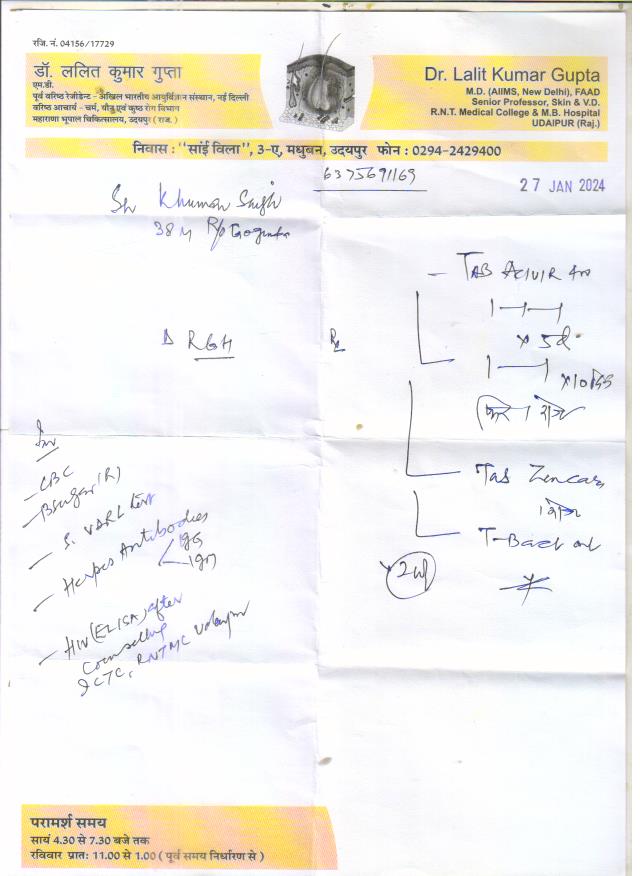 रजि. नं. 04156/17729
डॉ. ललित कुमार गुप्ता
एम.डी.
पूर्व वरिष्ठ रेजीडेन्ट - अखिल भारतीय आयुर्विज्ञान संस्थान, नई दिल्ली
वरिष्ठ आचार्य - चर्म, यौन एवं कुष्ठ रोग विभाग
महाराणा भूपाल चिकित्सालय, उदयपुर (राज.)
Dr. Lalit Kumar Gupta
M.D. (AIIMS, New Delhi), FAAD
Senior Professor, Skin & V.D.
R.N.T. Medical College & M.B. Hospital
UDAIPUR (Raj.)
निवास : "सांई विला", 3-ए, मधुबन, उदयपुर फोन : 0294-2429400
6375691169
27 JAN 2024
Sh Khuman Singh
38 M R/o Gogunda
Δ RGH
Rx
- TAB ACIVIR
1-1-1
x 5d
1-1
फिर 1 रोज
TAB
1 रोज
Inv
- CBC
- Bsugar (R)
- S. VDRL test
- Herpes Antibodies
IgG
IgM
- HIV (ELISA) after
Counselling
ICTC, RNTMC Udaipur
परामर्श समय
सायं 4.30 से 7.30 बजे तक
रविवार प्रातः 11.00 से 1.00 ( पूर्व समय निर्धारण से )